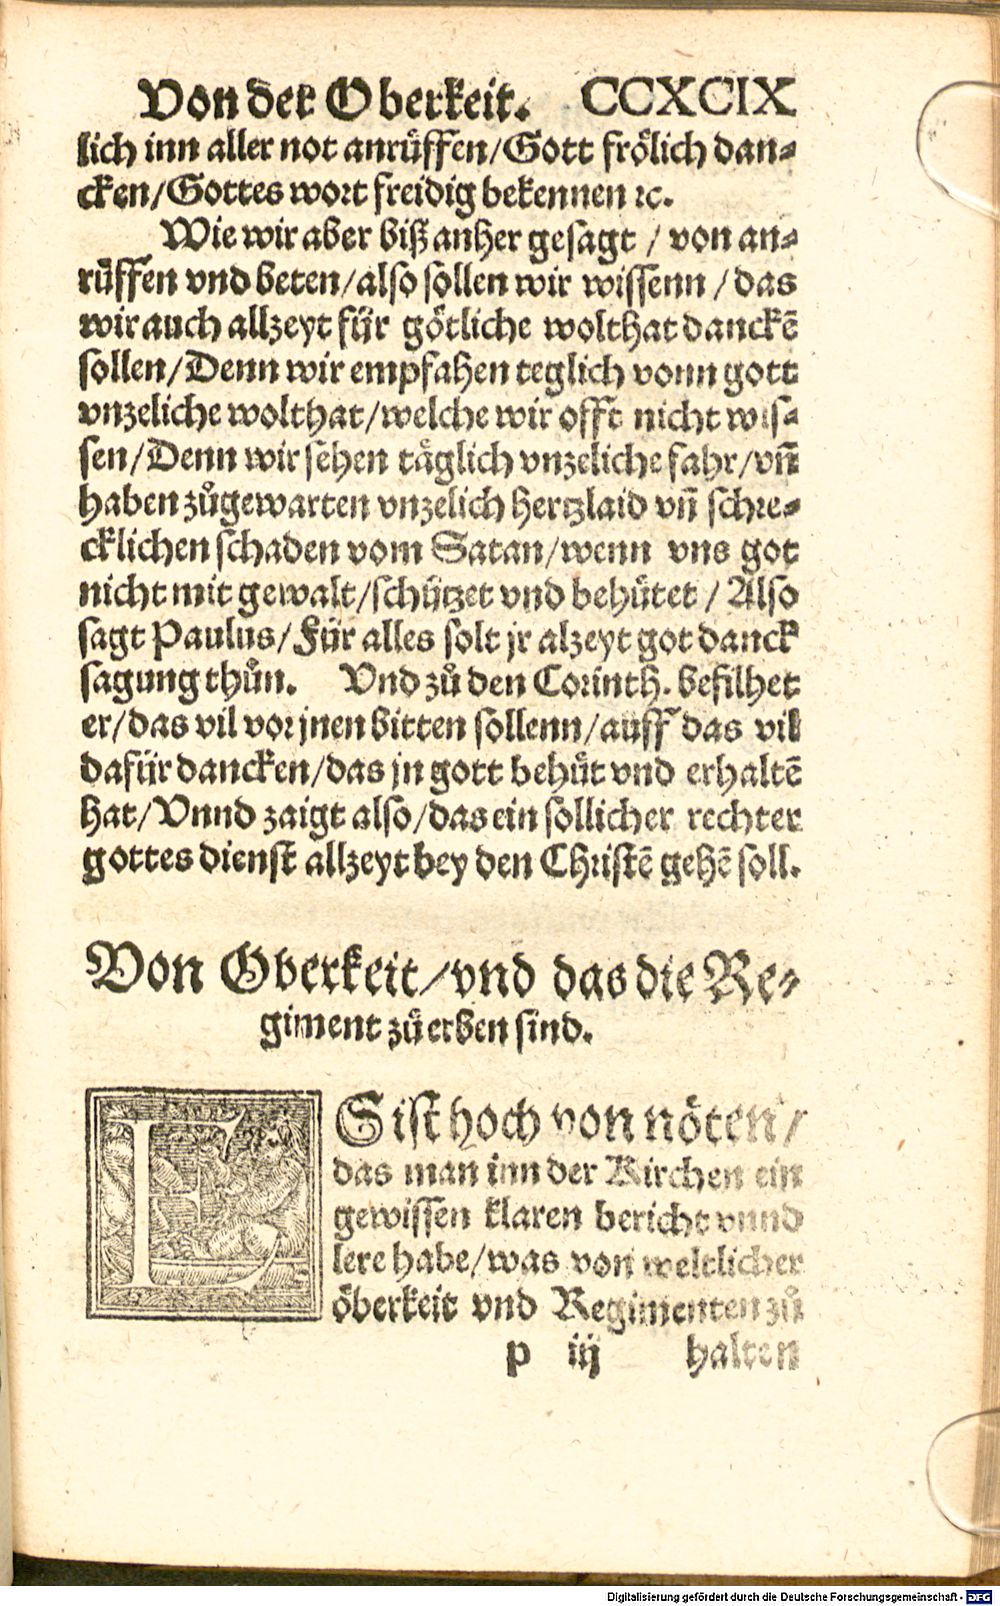 Von der Oberkeit. CCXCIX
lich inn aller not anrůffen/Gott frölich dan-
cken/Gottes wort freidig bekennen ꝛc.
Wie wir aber biß anher gesagt / von an-
růffen vnd beten/also sollen wir wissenn / das
wir auch allzeyt für götliche wolthat danckē
sollen/Denn wir empfahen teglich vonn gott
vnzeliche wolthat/welche wir offt nicht wis-
sen/Denn wir sehen täglich vnzeliche fahr/vn̄
haben zůgewarten vnzelich hertzlaid vn̄ schre-
cklichen schaden vom Satan/wenn vns got
nicht mit gewalt/schützet vnd behütet / Also
sagt Paulus/Für alles solt jr alzeyt got danck
sagung thůn. Vnd zů den Corinth. befilhet
er/das vil vor jnen bitten sollenn/auff das vil
dafür dancken/das jn gott behüt vnd erhaltē
hat/Vnnd zaigt also/das ein sollicher rechter
gottes dienst allzeyt bey den Christē gehē soll.
Von Oberkeit/vnd das die Re-
giment zů erben sind.
ES ist hoch von nöten/
das man inn der Kirchen ein
gewissen klaren bericht vnnd
lere habe/was von weltlicher
öberkeit vnd Regimenten zů
p iij halten
Digitalisierung gefördert durch die Deutsche Forschungsgemeinschaft - DFG